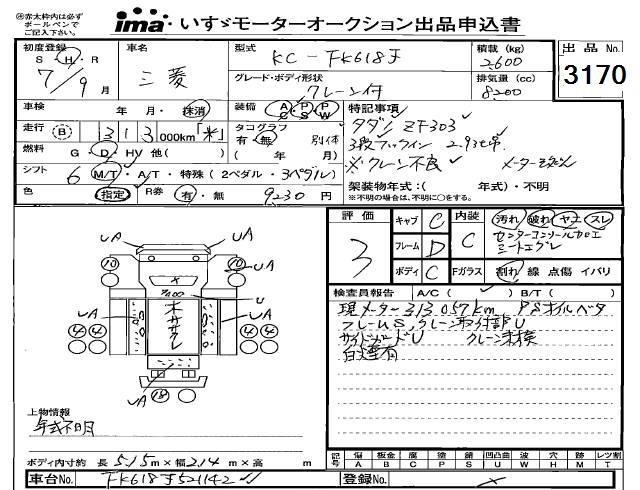 ㊟赤太枠内は必ずボールペンでご記入下さい。
ima いすゞモーターオークション出品申込書
初度登録 S・H・R 7/9月
車名 三菱
型式 KC-FK618J
積載 (kg) 2,600
出品No. 3170
グレード・ボディ形状 クレーン付
排気量 (cc) 8200
車検 年・月・抹消
装備 AC PS PW
特記事項
走行 B 313000km 米
タコグラフ 有・無 別体 ( 年 月)
タダノ ZF303
3段フックイン 2.93t吊
※クレーン不良
燃料 G・D・HV 他( )
シフト 6 M/T・A/T・特殊 (2ペダル・3ペダル)
架装物年式:( 年式)・不明
※不明の場合は、不明に○をする。
色 指定 R券 有・無 9230円
評価 3
キャブ C
フレーム D
ボディ C
内装 C
Fガラス
汚れ 破れ ヤニ スレ
センターコンソールカロエ
割れ 線 点傷 イバリ
検査員報告 A/C( ) B/T( )
現メーター313,057km PSオイルベタ
フレームS,クレーン取付部U
サイドガードU クレーン未検
白煙有
UA UA
10 10
UA U UA
木ササクレ
4 4 4 4
UA 18 UA
上物情報
年式不明
ボディ内寸約 長515m×幅214m×高 m
記号 傷A 板金B 腐C 塗P 錆S 凹凸曲U 波W 穴H 跡M レツ割T
車台No. FK618J521142
登録No.